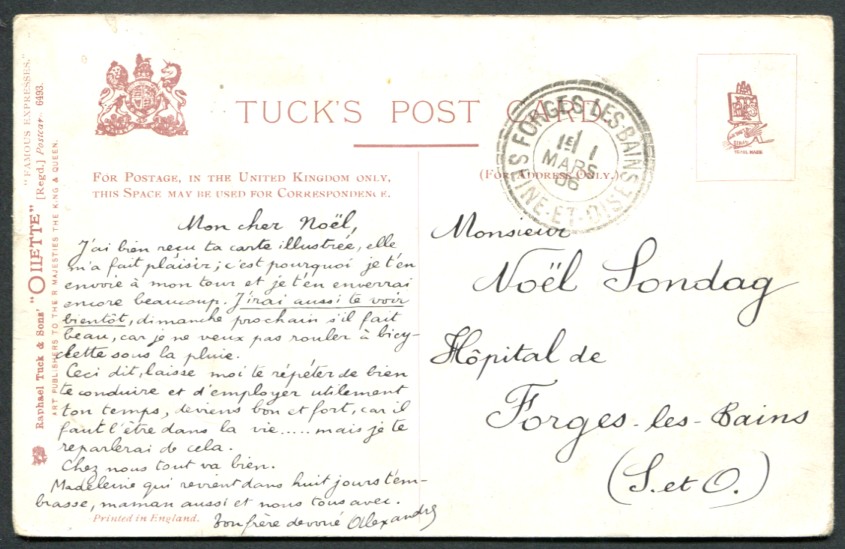 TUCK'S POST CARD
FORGES LES BAINS
1
15 1
MARS
06
SEINE-ET-OISE
FOR POSTAGE, IN THE UNITED KINGDOM ONLY,
THIS SPACE MAY BE USED FOR CORRESPONDENCE.
(FOR ADDRESS ONLY.)
"FAMOUS EXPRESSES."
[Regd.] Postcard 6493.
Raphael Tuck & Sons' "OILETTE"
ART PUBLISHERS TO THEIR MAJESTIES THE KING & QUEEN.
Mon cher Noël,
J'ai bien reçu ta carte illustrée, elle
m'a fait plaisir; c'est pourquoi je t'en
envoie à mon tour et je t'en enverrai
encore beaucoup. J'irai aussi te voir
bientôt, dimanche prochain s'il fait
beau, car je ne veux pas rouler à bicy-
clette sous la pluie.
Ceci dit, laisse moi te répéter de bien
te conduire et d'employer utilement
ton temps, deviens bon et fort, car il
faut l'être dans la vie..... mais je te
reparlerai de cela.
Chez nous tout va bien.
Madeleine qui revient dans huit jours t'em-
brasse, maman aussi et nous tous avec.
Ton frère dévoué Alexandre
Printed in England.
Monsieur
Noël Sondag
Hôpital de
Forges-les-Bains
(S. et O.)